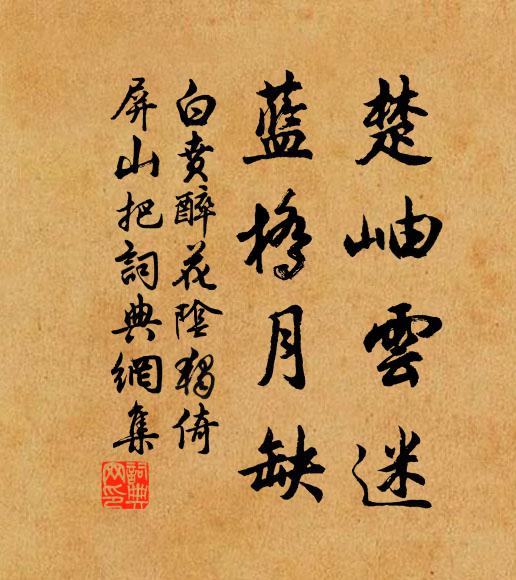 楚岫雲迷
藍橋月缺
白賁醉花陰獨倚
屏山把詞典網集
詞典網印